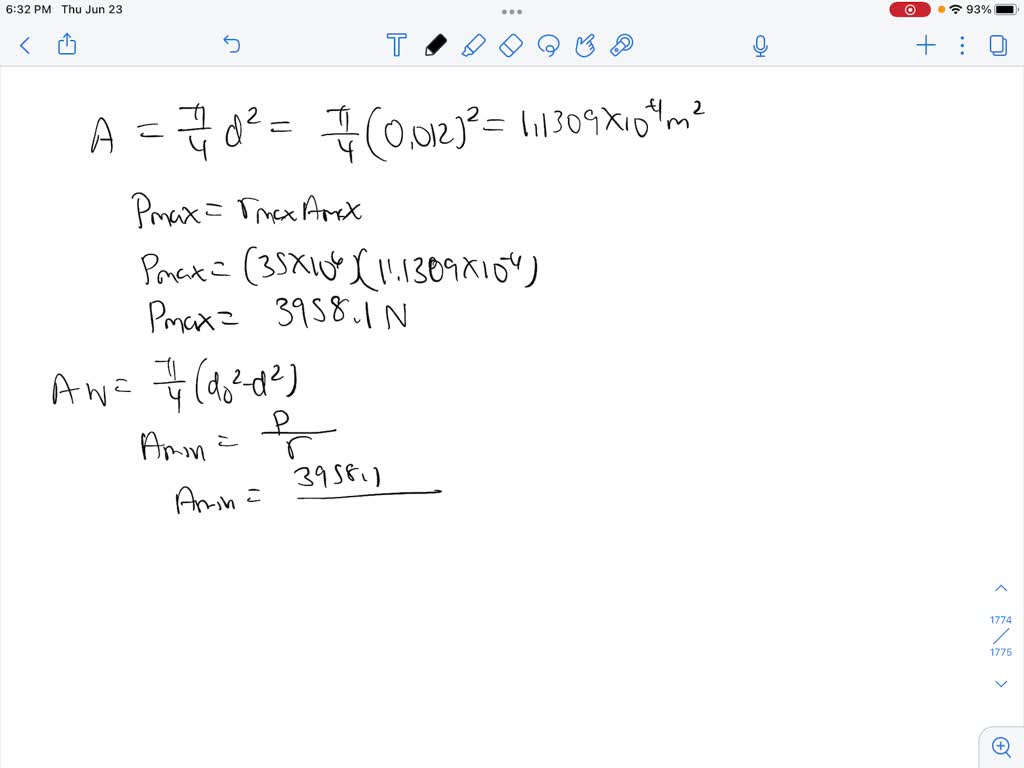 6:32 PM Thu Jun 23
93%
T
A = π/4 d² = π/4 (0.012)² = 1.1309×10⁻⁴ m²
Pmax = σmax Amax
Pmax = (35×10⁶)(1.1309×10⁻⁴)
Pmax = 3958.1 N
Aw = π/4 (do² - d²)
Amin = P/σ
Amin = 3958.1
1774
/
1775